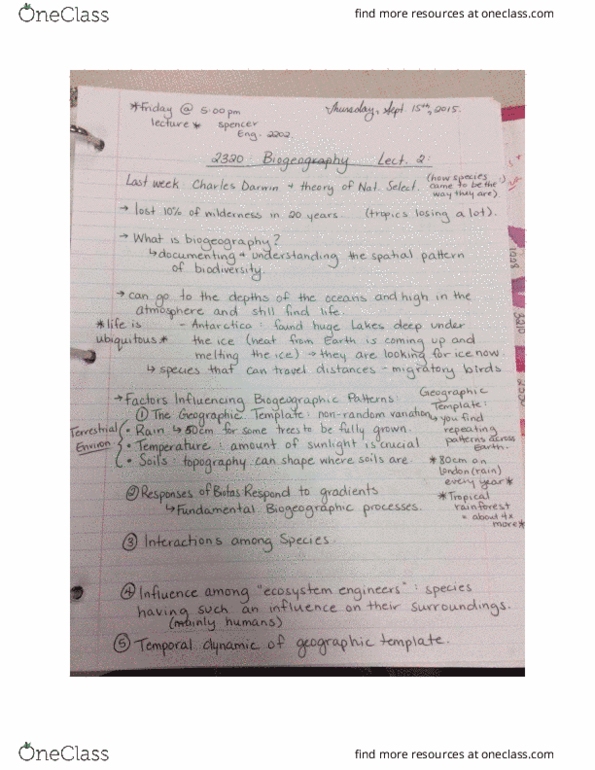 OneClass
find more resources at oneclass.com
*Friday @ 5:00pm
lecture* spencer
Eng. 2202.
Thursday, Sept 15th, 2015.
2320 Biogeography Lect. 2
Last week Charles Darwin + theory of Nat. Select. (how species
came to be the
way they are)
→ lost 10% of wilderness in 20 years. (tropics losing a lot).
→ What is biogeography?
↳ documenting + understanding the spatial pattern
of biodiversity.
→ can go to the depths of the oceans and high in the
atmosphere and still find life.
*life is
ubiquitous*
- Antarctica: found huge Lakes deep under
the ice (heat from Earth is coming up and
melting the ice) → they are looking for ice now.
↳ species that can travel distances - migratory birds
→ Factors Influencing Biogeographic Patterns:
① The Geographic Template: non-random variation
Terrestrial
Environ
• Rain ↳ 50cm for some trees to be fully grown.
• Temperature: amount of sunlight is crucial
• Soils: topography can shape where soils are.
Geographic
Template:
↳ you find
repeating
patterns across
Earth.
*80cm on
London (rain)
every year*
*Tropical
rainforest
= about 4x
more*
② Responses of Biotas Respond to gradients
↳ Fundamental Biogeographic processes.
③ Interactions among Species.
④ Influence among "ecosystem engineers": species
having such an influence on their surroundings.
(mainly humans)
⑤ Temporal dynamic of geographic template.
OneClass
find more resources at oneclass.com